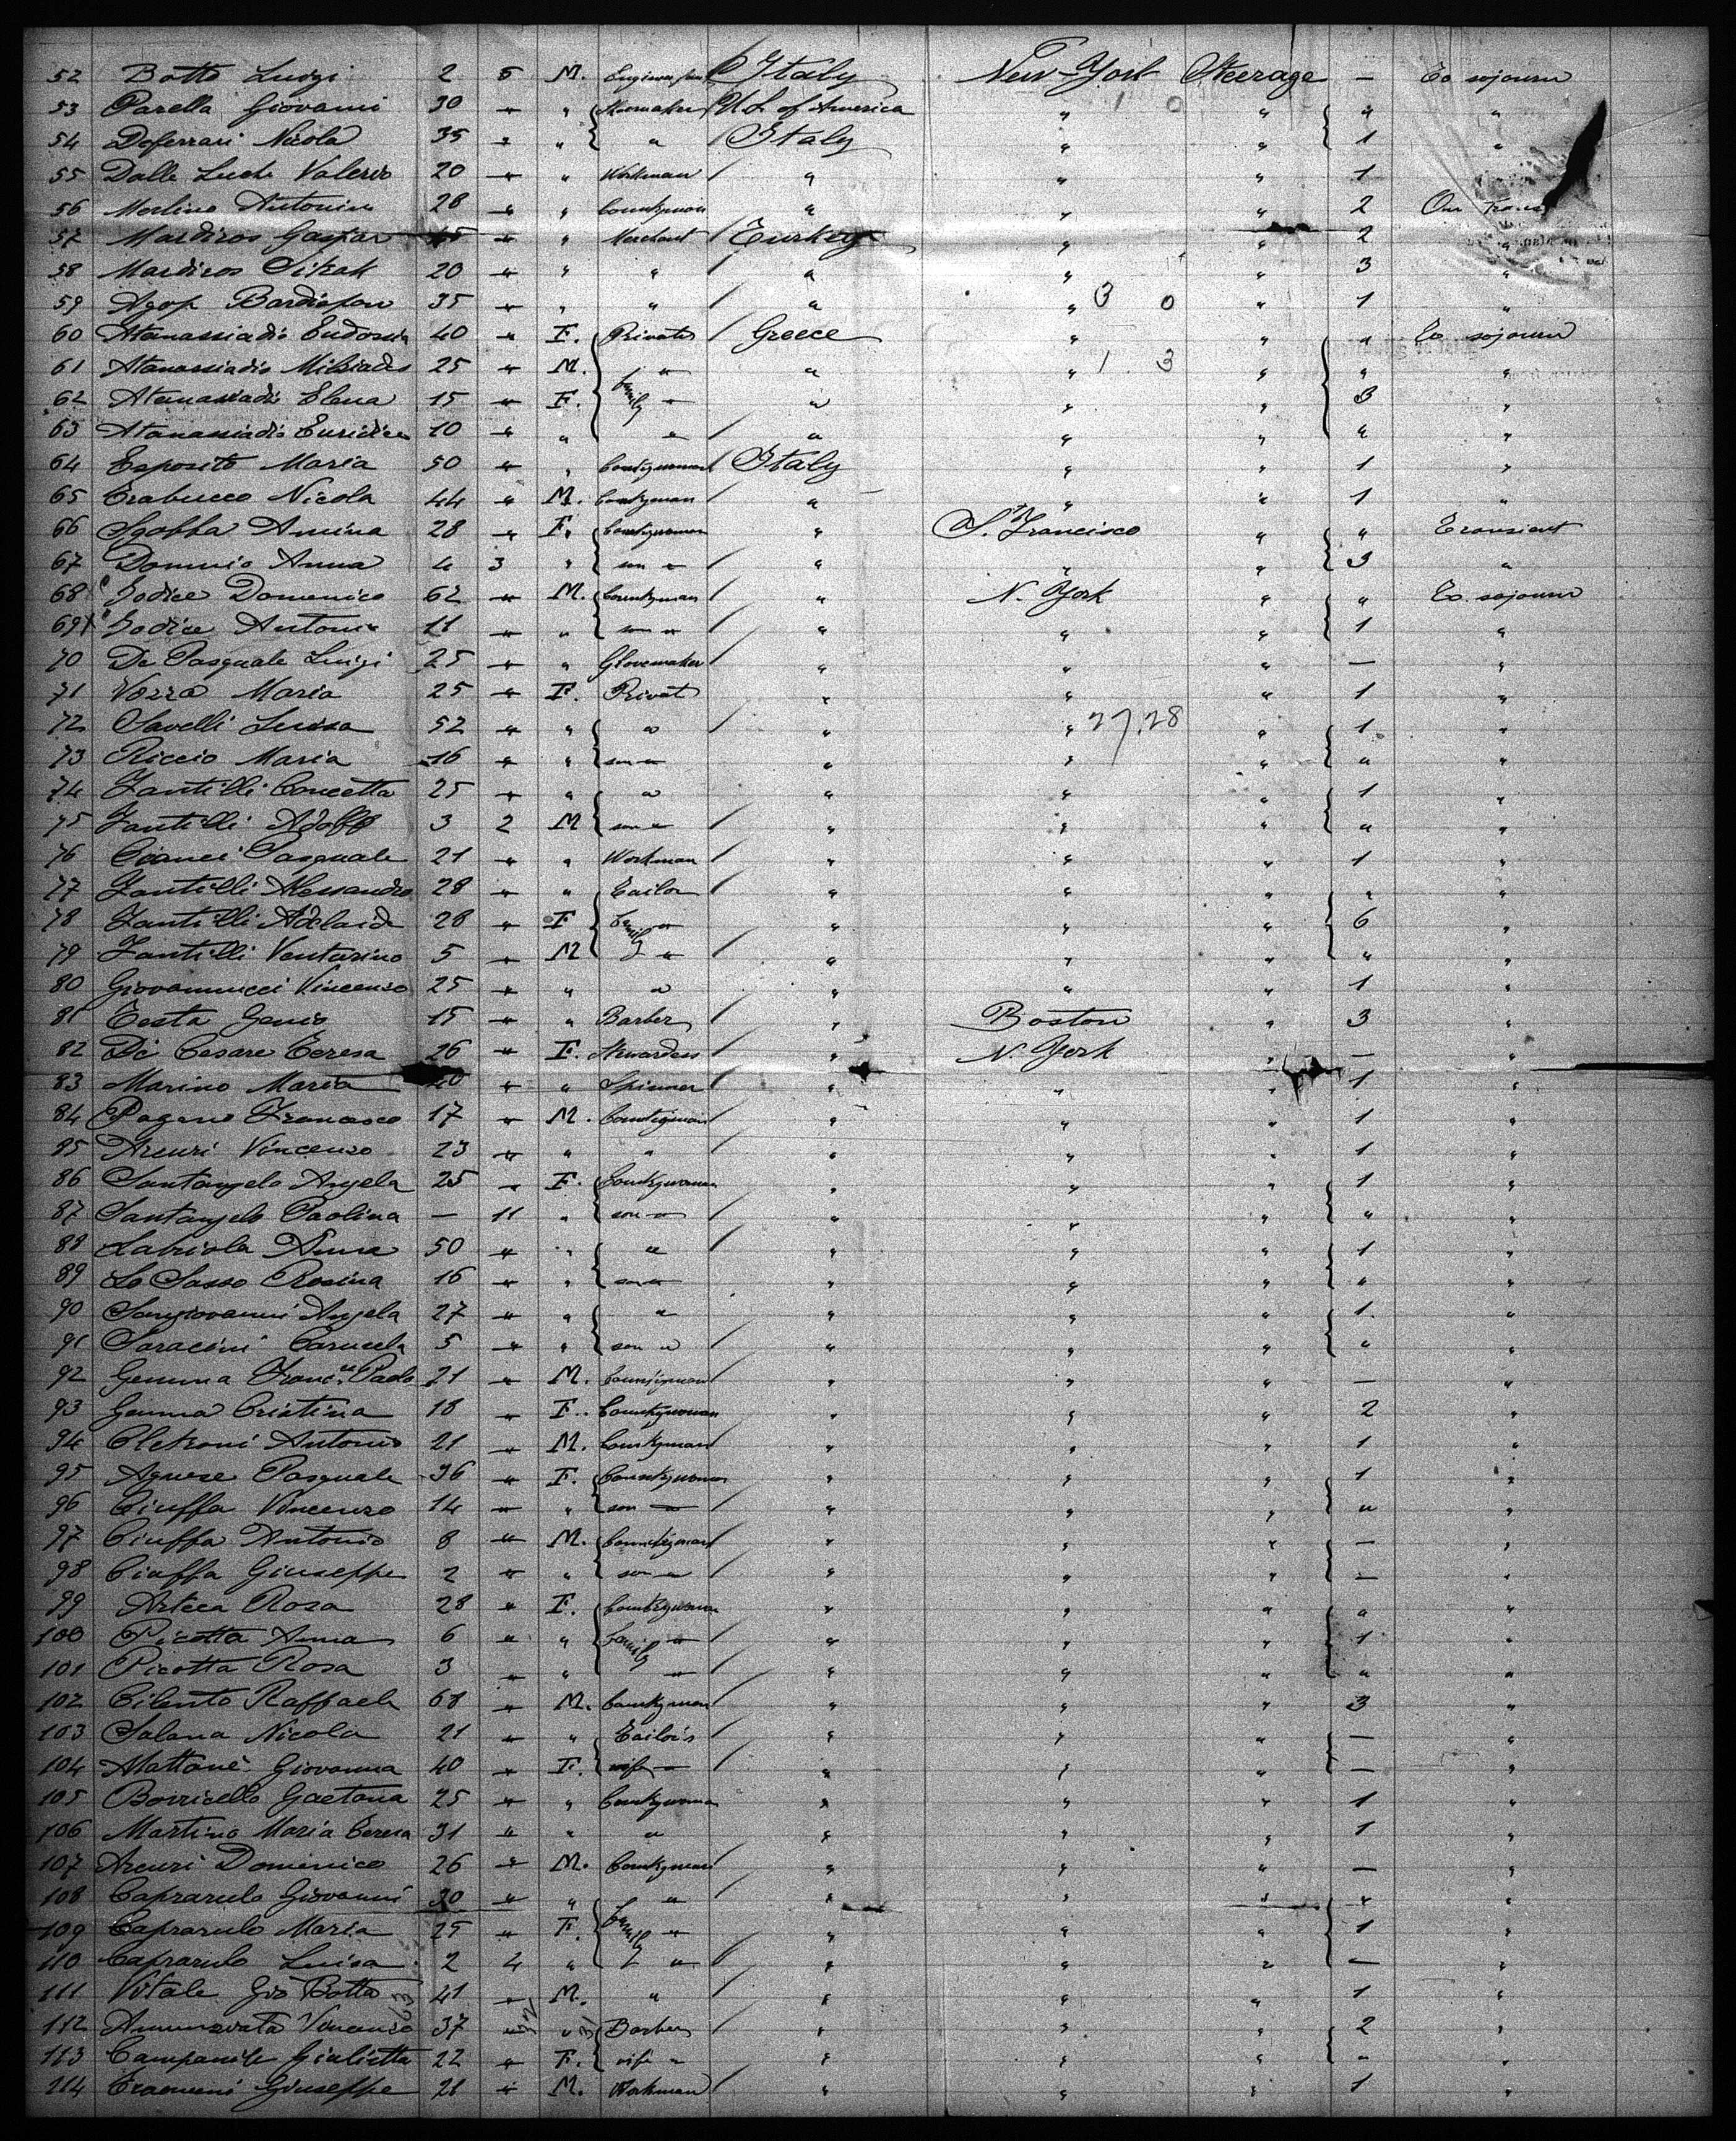 52 Botto Luigi 2 5 M. Italy New-York Steerage — To sojourn
53 Parella Giovanni 30 " " U.S. of America " " " "
54 Deferrari Nicola 35 " " " Italy " " 1 "
55 Dalle Luche Valerio 20 " " Workman " " " 1
56 Merlino Antonin 28 " " Countryman " " " 2 On
57 Mardiros Gaspar " " Merchant Turkey " " 2 "
58 Mardiros Sitrak 20 " " " " " " 3 "
59 Agop 35 " " " " " 3 0 " 1 "
60 Atanassiadis Eudossia 40 " F. Private Greece " " " To sojourn
61 Atanassiadis Milziades 25 " M. " " " 1 3 " " "
62 Atanassiadis Elena 15 " F. family " " " " 3 "
63 Atanassiadis Euridice 10 " " " " " " " "
64 Esposito Maria 50 " " Countrywoman Italy " " 1 "
65 Trabucco Nicola 44 " M. Countryman " " " 1 "
66 Sgobba Amina 28 " F. Countrywoman " S. Francisco " " Transient
67 Domnio Anna 4 3 " son " " " " 3 "
68 Iodice Domenico 62 " M. Countryman " N. York " " To sojourn
69 Iodice Antonio 11 " " son " " " " 1 "
70 De Pasquale Luigi 25 " " Glovemaker " " " — "
71 Vozza Maria 25 " F. Privat " " " 1 "
72 Savelli Luisa 52 " " " " " 27.28 " 1 "
73 Riccio Maria 16 " " son " " " " " "
74 Zantilli Concetta 25 " " " " " " 1 "
75 Zantilli Adolfo 3 2 M son " " " " " "
76 Cianci Pasquale 21 " " Workman " " " 1 "
77 Zantilli Alessandro 28 " " Tailor " " " " "
78 Zantilli Adelaide 28 " F family " " " " 6 "
79 Zantilli Venturino 5 " M " " " " " "
80 Giovannucci Vincenzo 25 " " " " " " 1 "
81 Testa Genio 15 " " Barber " Boston " 3 "
82 Di Cesare Teresa 26 " F. Stewardess " N. York " — "
83 Marino Maria " " Spinner " " " 1 "
84 Pagano Francesco 17 " M. Countryman " " " 1 "
85 Arcuri Vincenzo 23 " " " " " " 1 "
86 Santangelo Angela 25 " F. Countrywoman " " " 1 "
87 Santangelo Paolina — 11 " son " " " " " "
88 Labriola Anna 50 " " " " " " 1 "
89 Lo Sasso Rosina 16 " " son " " " " " "
90 Sangiovanni Angela 27 " " " " " " 1 "
91 Saracini Carmela 5 " " son " " " " " "
92 Gemma Franc.co Paolo 21 " M. Countryman " " " — "
93 Gemma Cristina 18 " F. Countrywoman " " " 2 "
94 Cletroni Antonio 21 " M. Countryman " " " 1 "
95 Agnese Pasquale 36 " F. Countrywoman " " " 1 "
96 Ciuffa Vincenzo 14 " " son " " " " " "
97 Ciuffa Antonio 8 " M. Countryman " " " — "
98 Ciuffa Giuseppe 2 " " son " " " " — "
99 Artesa Rosa 28 " F. Countrywoman " " " " "
100 Picotta Anna 6 " " family " " " " 1 "
101 Picotta Rosa 3 " " " " " " " "
102 Cilento Raffaele 68 " M. Countryman " " " 3 "
103 Salana Nicola 21 " " Tailor's " " " — "
104 Mattonè Giovanna 40 " F. wife " " " " — "
105 Borricello Gaetana 25 " " Countrywoman " " " 1 "
106 Martino Maria Teresa 31 " " " " " " 1 "
107 Arcuri Domenico 26 " M. Countryman " " " — "
108 Caprarulo Giovanni 30 " " " " " " " "
109 Caprarulo Maria 25 " F. family " " " " 1 "
110 Caprarulo Luisa 2 4 " " " " " — "
111 Vitale Gio Botta 41 " M. " " " " 1 "
112 Annunziata Vincenzo 37 " " Barber " " " 2 "
113 Campanile Giulietta 22 " F. wife " " " " " "
114 Giuseppe 21 " M. Workman " " " 1 "